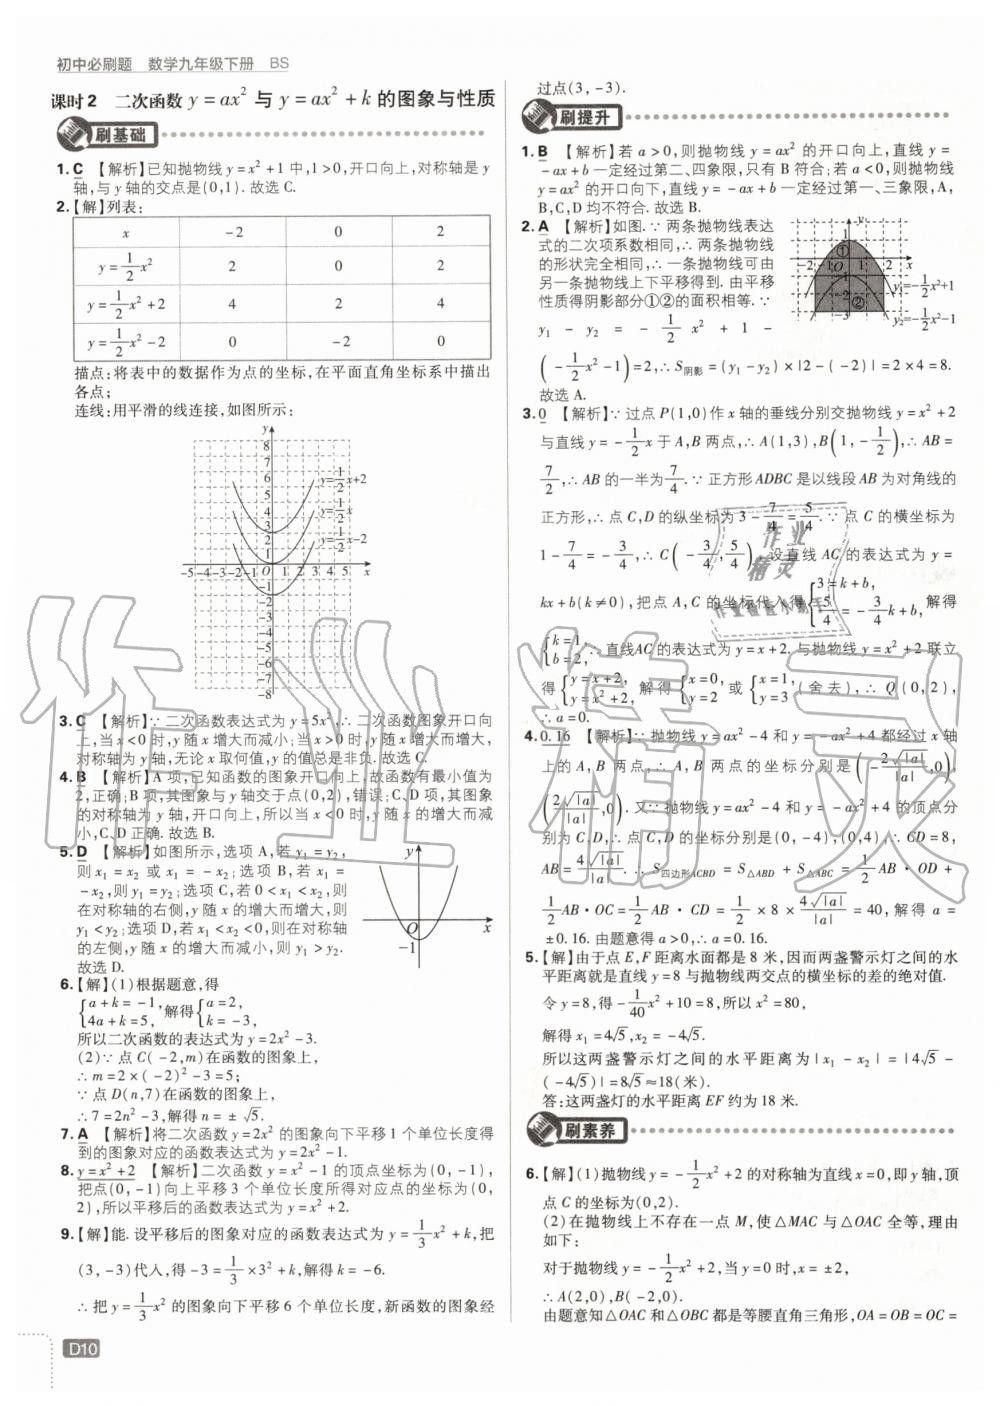 初中必刷题 数学九年级下册 BS
课时2 二次函数 y=ax² 与 y=ax²+k 的图象与性质
刷基础
1. C 【解析】已知抛物线 y=x²+1 中,1>0,开口向上,对称轴是 y
轴,与 y 轴的交点是(0,1).故选 C.
2.【解】列表:
x -2 0 2
y=1/2x² 2 0 2
y=1/2x²+2 4 2 4
y=1/2x²-2 0 -2 0
描点:将表中的数据作为点的坐标,在平面直角坐标系中描出
各点;
连线:用平滑的线连接,如图所示:
y
8
7
6
5
4
3
2
1
y=1/2x+2
y=1/2x
y=1/2x-2
-5-4-3-2-1 O 1 2 3 4 5 x
-1
-2
-3
-4
-5
-6
-7
-8
3. C 【解析】∵ 二次函数表达式为 y=5x²,∴ 二次函数图象开口向
上,当 x<0 时,y 随 x 增大而减小;当 x>0 时,y 随 x 增大而增大,
对称轴为 y 轴,无论 x 取何值,y 的值总是非负.故选 C.
4. B 【解析】A 项,已知函数的图象开口向上,故函数有最小值为
2,正确;B 项,其图象与 y 轴交于点(0,2),错误;C、D 项,其图象
的对称轴为 y 轴,开口向上,所以当 x<0 时,y 随 x 的增大而减
小,C、D 正确.故选 B.
5. D 【解析】如图所示,选项 A,若 y₁=y₂,
则 x₁=x₂ 或 x₁=-x₂;选项 B,若 x₁=
-x₂,则 y₁=y₂;选项 C,若 0<x₁<x₂,则
在对称轴的右侧,y 随 x 的增大而增大,则
y₁<y₂;选项 D,若 x₁<x₂<0,则在对称轴
的左侧,y 随 x 的增大而减小,则 y₁>y₂.
故选 D.
y
O
x
-1
6.【解】(1)根据题意,得
{a+k=-1, 4a+k=5, 解得{a=2, k=-3,
所以二次函数的表达式为 y=2x²-3.
(2)∵ 点 C(-2,m)在函数的图象上,
∴ m=2×(-2)²-3=5;
∵ 点 D(n,7)在函数的图象上,
∴ 7=2n²-3,解得 n=±√5.
7. A 【解析】将二次函数 y=2x² 的图象向下平移 1 个单位长度得
到的图象对应的函数表达式为 y=2x²-1.
8. y=x²+2 【解析】二次函数 y=x²-1 的顶点坐标为(0,-1),
把点(0,-1)向上平移 3 个单位长度所得对应点的坐标为(0,
2),所以平移后的函数表达式为 y=x²+2.
9.【解】能.设平移后的图象对应的函数表达式为 y=1/3x²+k,把
(3,-3)代入,得 -3=1/3×3²+k,解得 k=-6.
∴ 把 y=1/3x² 的图象向下平移 6 个单位长度,新函数的图象经
过点(3,-3).
刷提升
1. B 【解析】若 a>0,则抛物线 y=ax² 的开口向上,直线 y=
-ax+b 一定经过第二、四象限,只有 B 符合;若 a<0,则抛物线
y=ax² 的开口向下,直线 y=-ax+b 一定经过第一、三象限,A、
B、C、D 均不符合.故选 B.
2. A 【解析】如图.∵ 两条抛物线表达
式的二次项系数相同,∴ 两条抛物线
的形状完全相同,∴ 一条抛物线可由
另一条抛物线上下平移得到.由平移
性质得阴影部分①②的面积相等.∵
y₁-y₂=-1/2x²+1-
(-1/2x²-1)=2,∴ S阴影=(y₁-y₂)×|2-(-2)|=2×4=8.
故选 A.
y
1
①
-2 -1 O 1 2 x
-1
②
-3
y₁=-1/2x²+1
y₂=-1/2x²-1
3. 0 【解析】∵ 过点 P(1,0)作 x 轴的垂线分别交抛物线 y=x²+2
与直线 y=-1/2x 于 A,B 两点,∴ A(1,3),B(1,-1/2),∴ AB=
7/2,∴ AB 的一半为 7/4.∵ 正方形 ADBC 是以线段 AB 为对角线的
正方形,∴ 点 C,D 的纵坐标为 3-7/4=5/4.∵ 点 C 的横坐标为
1-7/4=-3/4,∴ C(-3/4,5/4).设直线 AC 的表达式为 y=
kx+b(k≠0),把点 A,C 的坐标代入得{3=k+b, 5/4=-3/4k+b, 解得
{k=1, b=2, ∴ 直线AC的表达式为 y=x+2.与抛物线 y=x²+2 联立
得{y=x+2, y=x²+2, 解得{x=0, y=2 或{x=1, y=3 (舍去),∴ Q(0,2),
∴ a=0.
4. 0.16 【解析】∵ 抛物线 y=ax²-4 和 y=-ax²+4 都经过 x 轴
上的 A,B 两点,∴ A,B 两点的坐标分别是(-2√|a|/|a|,0),
(2√|a|/|a|,0).又∵ 抛物线 y=ax²-4 和 y=-ax²+4 的顶点分
别为 C,D,∴ 点 C,D 的坐标分别是(0,-4),(0,4),∴ CD=8,
AB=4√|a|/|a|.∴ S四边形ACBD=S△ABD+S△ABC=1/2AB·OD+
1/2AB·OC=1/2AB·CD=1/2×8×4√|a|/|a|=40,解得 a=
±0.16.由题意得 a>0,∴ a=0.16.
5.【解】由于点 E,F 距离水面都是 8 米,因而两盏警示灯之间的水
平距离就是直线 y=8 与抛物线两交点的横坐标的差的绝对值.
令 y=8,得 -1/40x²+10=8,所以 x²=80,
解得 x₁=4√5,x₂=-4√5.
所以这两盏警示灯之间的水平距离为 |x₁-x₂|=|4√5-
(-4√5)|=8√5≈18(米).
答:这两盏灯的水平距离 EF 约为 18 米.
刷素养
6.【解】(1)抛物线 y=-1/2x²+2 的对称轴为直线 x=0,即 y 轴,顶
点 C 的坐标为(0,2).
(2)在抛物线上不存在一点 M,使△MAC 与△OAC 全等,理由
如下:
对于抛物线 y=-1/2x²+2,当 y=0 时,x=±2,
∴ A(2,0),B(-2,0).
由题意知△OAC 和△OBC 都是等腰直角三角形,OA=OB=OC=
D10
作业精灵
作业
精灵